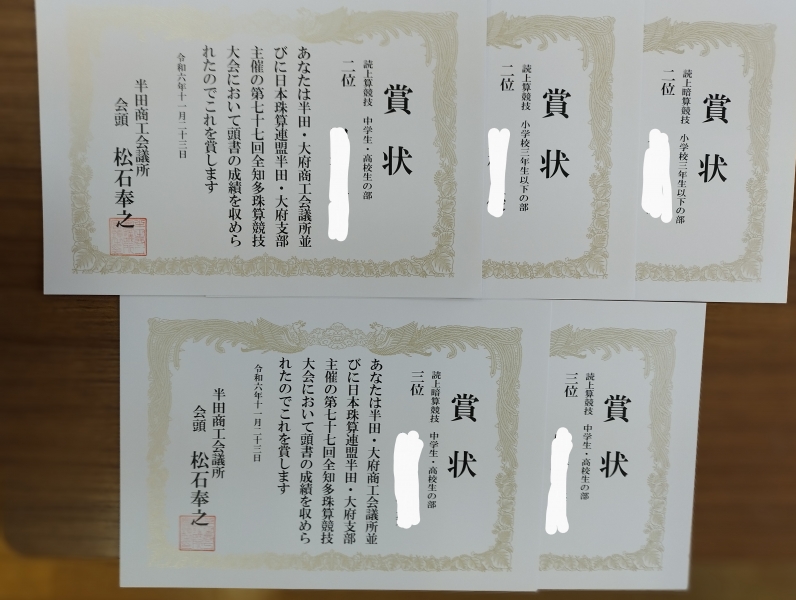 賞状
読上算競技 中学生・高校生の部
二位
あなたは半田・大府商工会議所並
びに日本珠算連盟半田・大府支部
主催の第七十七回全知多珠算競技
大会において頭書の成績を収めら
れたのでこれを賞します
令和六年十一月二十三日
半田商工会議所
会頭 松石奉之
賞状
読上算競技 小学校三年生以下の部
二位
賞状
読上暗算競技 小学校三年生以下の部
二位
賞状
読上暗算競技 中学生・高校生の部
三位
あなたは半田・大府商工会議所並
びに日本珠算連盟半田・大府支部
主催の第七十七回全知多珠算競技
大会において頭書の成績を収めら
れたのでこれを賞します
令和六年十一月二十三日
半田商工会議所
会頭 松石奉之
賞状
読上暗算競技 中学生・高校生の部
三位